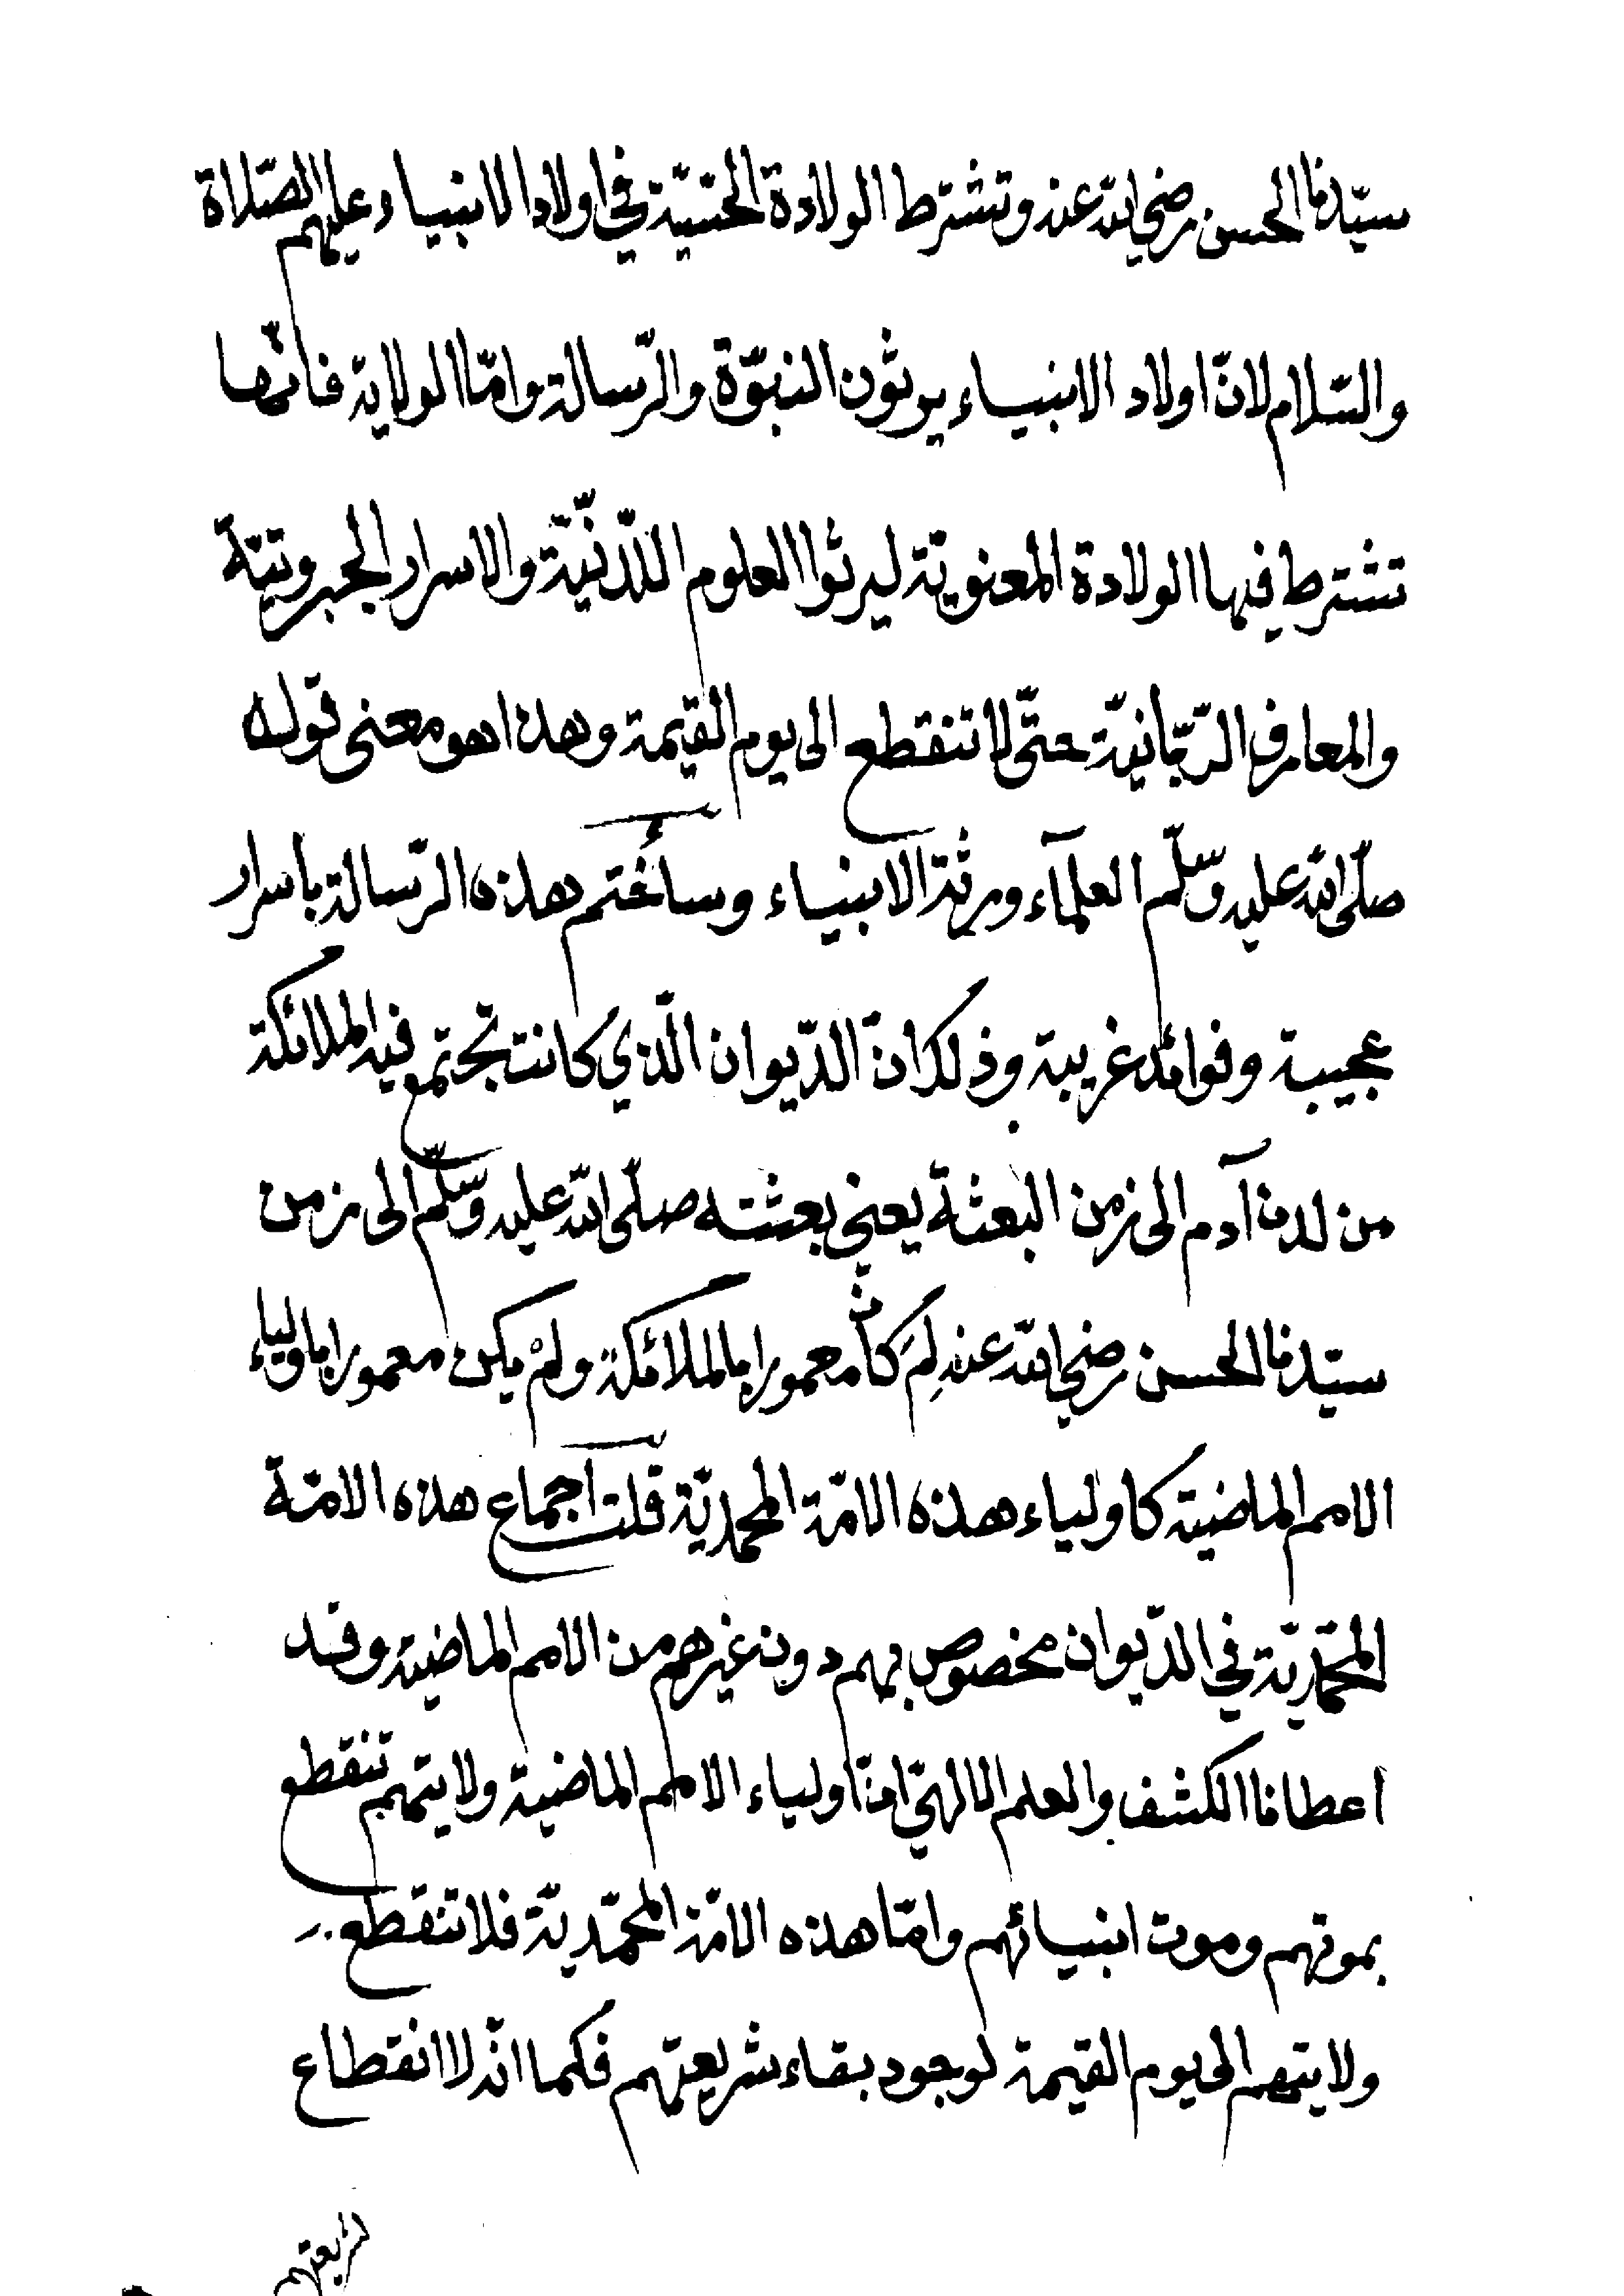 سيّدنا الحسن رضي الله عنه وتشترط الولادة الحسّيّة في اولاد الانبياء عليهم الصّلاة
والسّلام لانّ اولاد الانبياء يرثون النبوّة والرّسالة وامّا الولاية فانّها
تشترط فيها الولادة المعنويّة ليرثوا العلوم اللّدنّيّة والاسرار الجبروتيّة
والمعارف الرّبّانيّة حتّى لا تنقطع الى يوم القيمة وهذا هو معنى قوله
صلّى الله عليه وسلّم العلمآء ورثة الانبياء وسأختم هذه الرّسالة بأسرار
عجيبة وفوائد غريبة وذلك انّ الدّيوان الّذي كانت تجتمع فيه الملائكة
من لدن آدم الى زمن البعثة يعني بعثته صلّى الله عليه وسلّم الى زمن
سيّدنا الحسن رضي الله عنه لِمَ كان معمورا بالملائكة ولمْ يكن معمورا باولياء
الامم الماضية كاولياء هذه الامّة المحمديّة قلت اجماع هذه الامّة
المحمّديّة في الدّيوان مخصوص بهم دون غيرهم من الامم الماضية وقد
اعطانا الكشف والعلم الالهيّ انّ اولياء الامم الماضية ولايتهم تنقطع
بموتهم وموت انبيائهم وامّا هذه الامّة المحمّديّة فلا تنقطع
ولايتهم الى يوم القيمة لوجود بقاء شريعتهم فكما انّه لا انقطاع
شريعتهم